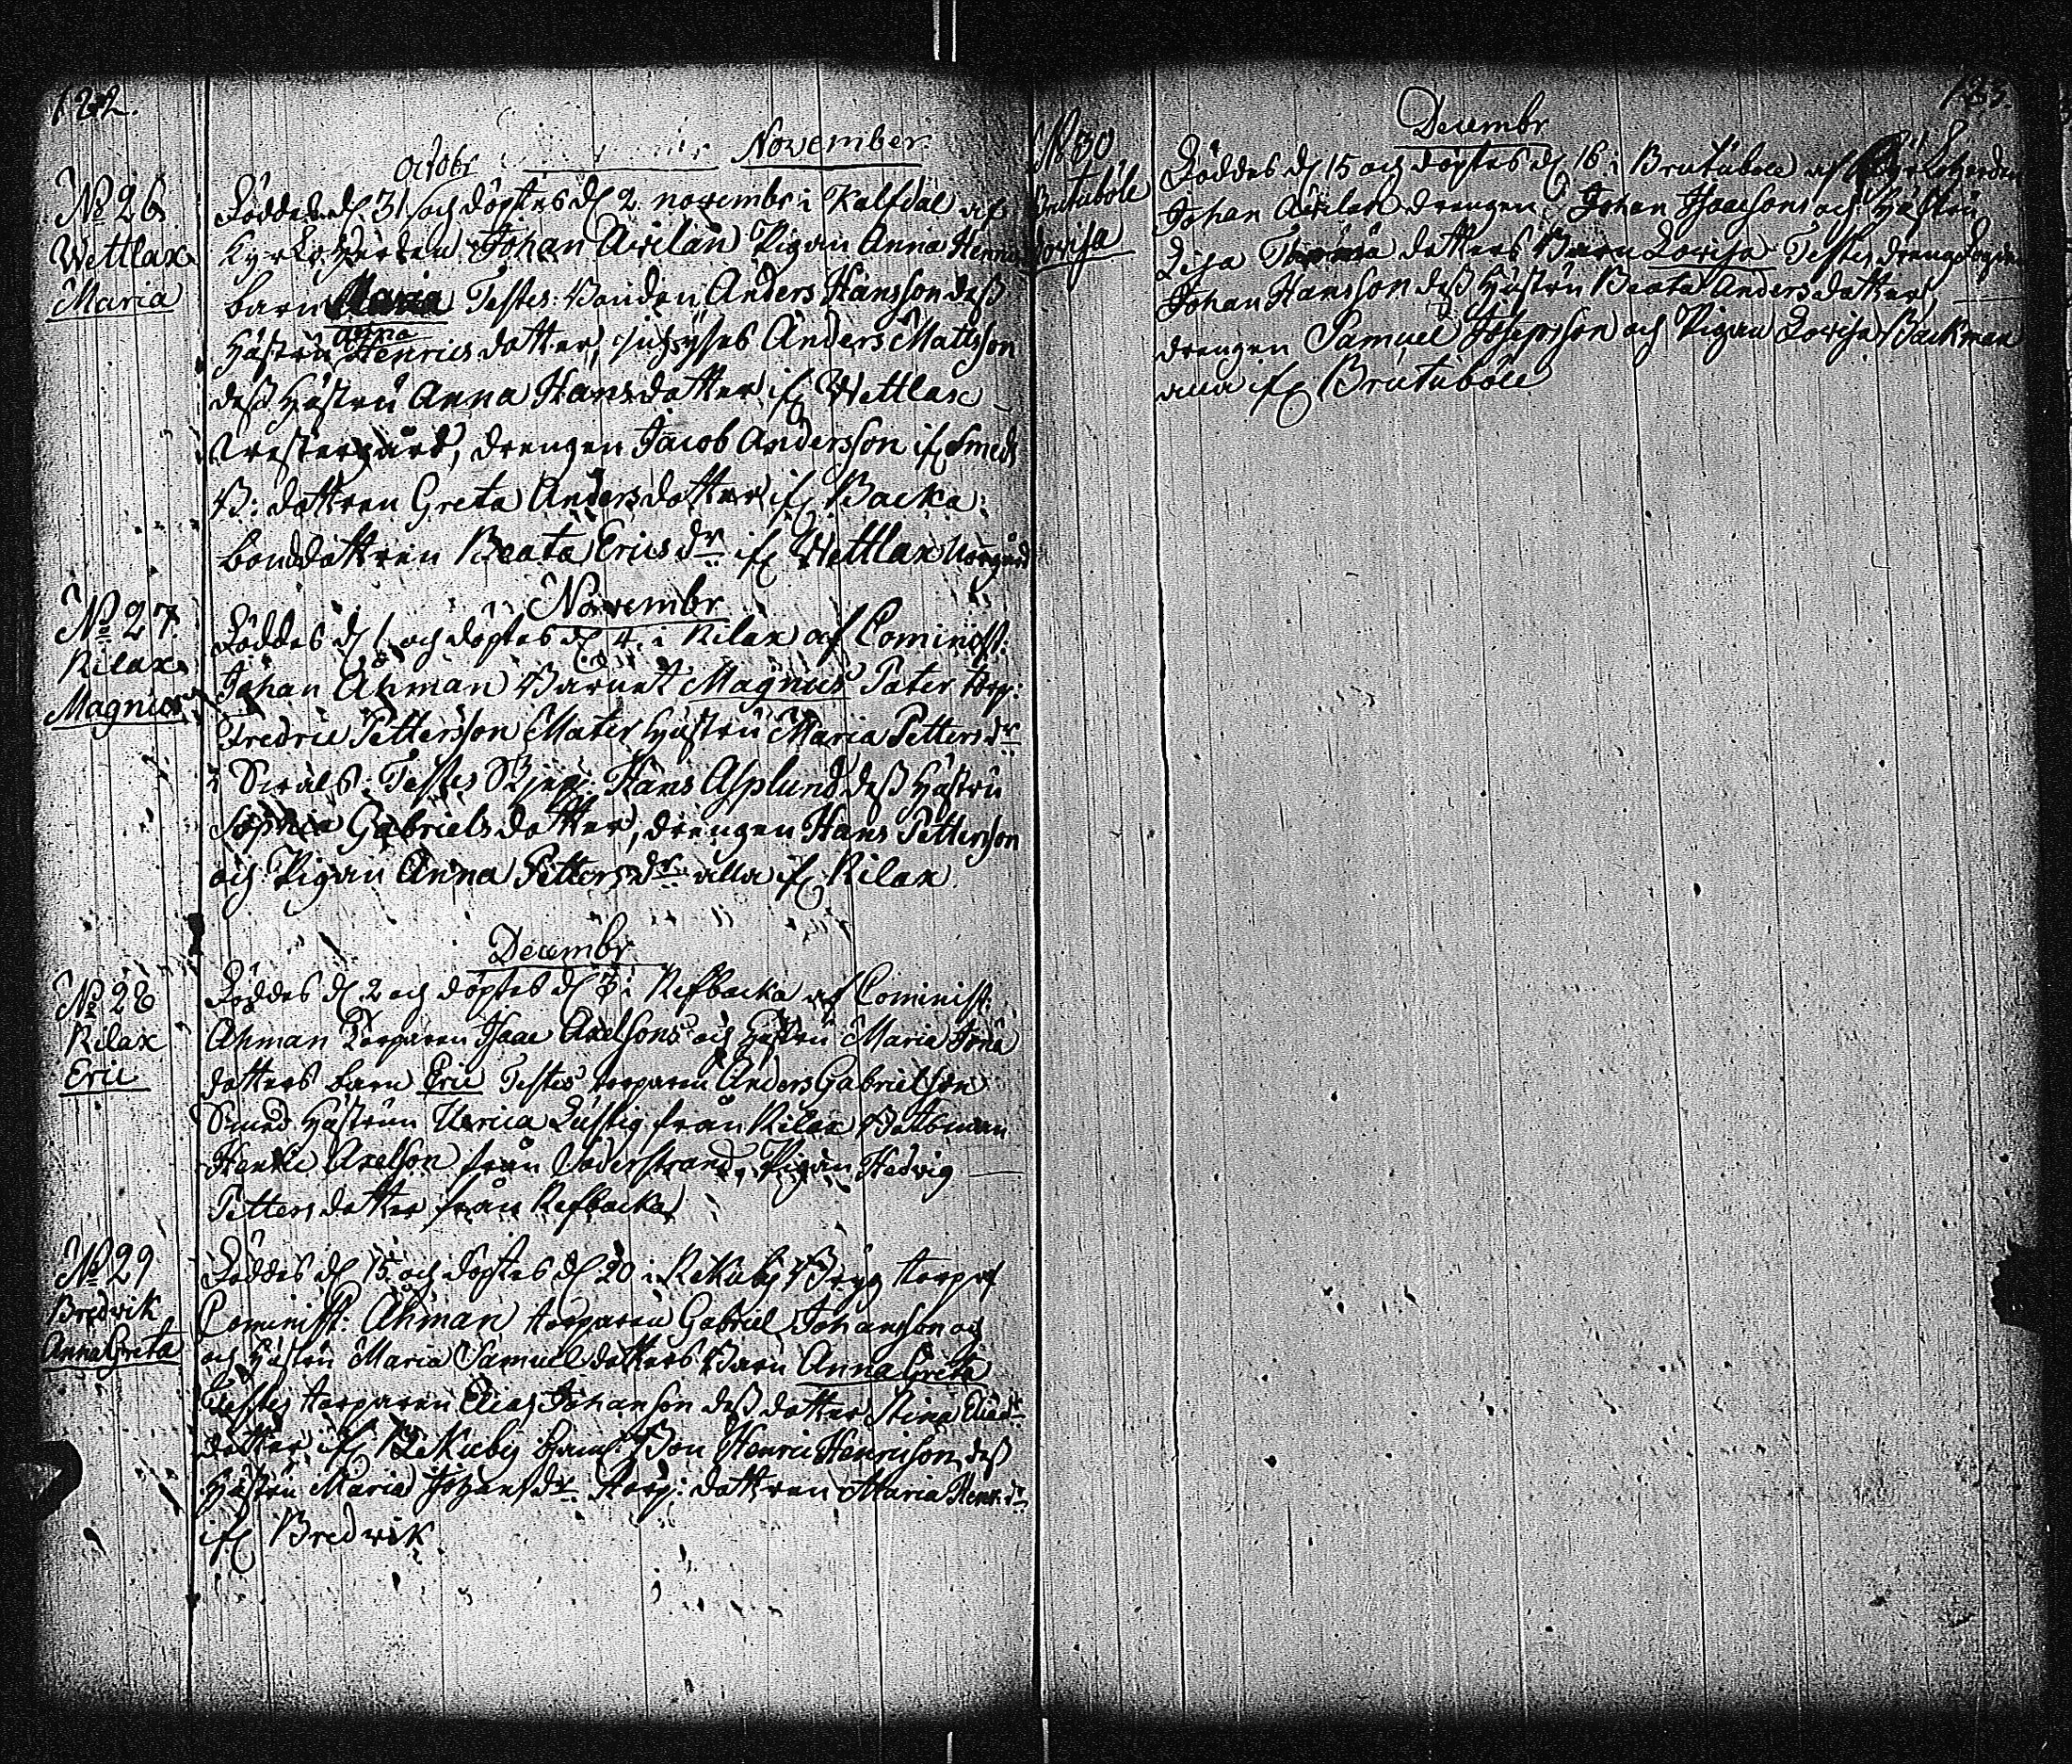 122.
November
octobr
No 26
Wettlax
Maria
Föddes d 31 och döptes d 2 novembr i Kalfdal af
Kyrkoherden Johan Avilan Pigan Anna Henrics
barn Maria Testes: Bonden Anders Hansson dess
Hustru Anna Henricsdotter, Anders Mattsson
dess Hustru Anna Hansdotter if Wettlax
Westergård, drengen Jacob Andersson if Smeds
B: dottren Greta Andersdotter if Backa:
bonddottren Beata Ericsdr if Wettlax Norrgård
Novembr
No 27
Rilax
Magnus
Föddes d 1 och döptes d 4 i Rilax af Cominist:
Johan Åhman Barnet Magnus Pater torp:
Fredric Pettersson Mater Hustru Maria Pettersdr
i Testes Hans Asplund dess Hustru
Sophia Gabrielsdotter, drengen Hans Pettersson
och Pigan Anna Pettersdr alla if Rilax
Decembr
No 28
Rilax
Eric
Föddes d 2 och döptes d 3 i Refbacka af Cominist:
Åhman Torparen Isaac Axelsons och Hustru Maria
dotters barn Eric Testes torparen Anders Gabrielson
Smed Hustrun Ulrica Lustig från Rilax Båtsman
Henric Axelson från Pigan Hedvig
Pettersdotter från Refbacka
No 29
Bredvik
Anna Greta
Föddes d 15 och döptes d 20 i Rekuby torp af
Cominist: Åhman torparen Gabriel Johansson och
och Hustru Maria Samuelsdotters Barn Anna Greta
Testes torparen Elias Johanson dess dotter Stina Eliæ
dotter if Rekuby Bon Henric Henricsson dess
Hustru Maria Johansdr Torp: dottren Maria Henr:dr
if Bredvik
123.
Decembr
No 30
Brutuböle
Lovisa
Föddes d 15 och döptes d 16 i Brutuböle af Kyrkoherden
Johan Avilan drengen Johan Isaacsons och Hustru
Lisa dotters Barn Lovisa Testes
Johan Hansson dess Hustru Beata Andersdotter,
drengen Samuel Josepsson och Pigan Lovisa Backman
alla if Brutuböle